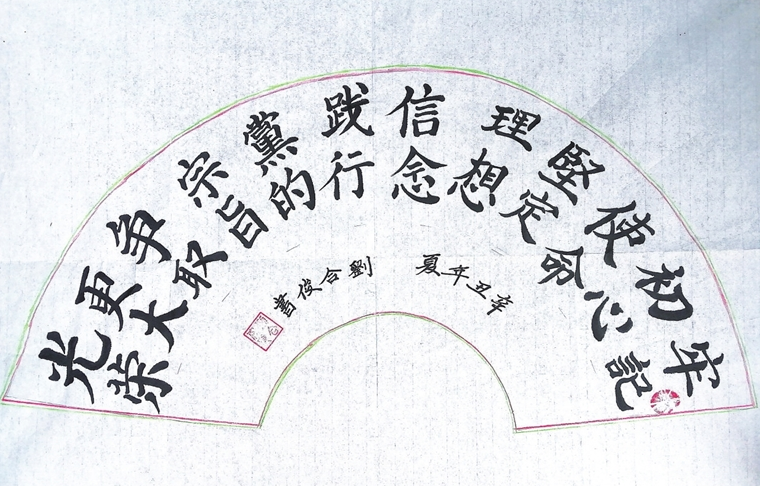 牢記
初心
使命
堅定
理想
信念
践行
黨的
宗旨
争取
更大
光荣
辛丑年夏
劉合俊書